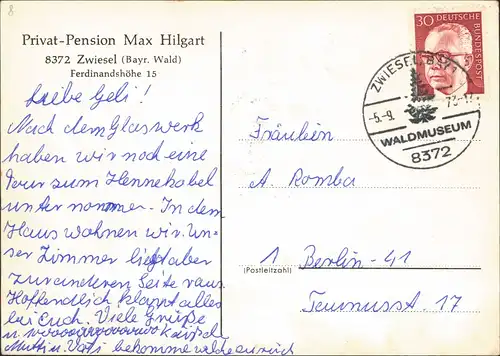 8
Privat-Pension Max Hilgart
8372 Zwiesel (Bayr. Wald)
Ferdinandshöhe 15
Liebe Geli!
Nach dem Glaswerk
haben wir noch eine
Tour zum Hennekobel
unternommen. In dem
Haus wohnen wir. Un-
ser Zimmer liegt aber
zur anderen Seite raus.
Hoffentlich klappt alles
bei Euch. Viele Grüße
u.
Mutti u. Vati
30 DEUTSCHE BUNDESPOST
ZWIESEL, BAY 1
-5.-9. 73-14
WALDMUSEUM
8372
Fräulein
A. Romba
1 Berlin-41
(Postleitzahl)
Taunusst. 17